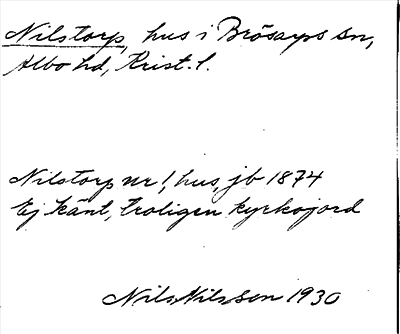 Nilstorp, hus i Brösarps sn,
Albo hd, Krist. l.
Nilstorp nr 1, hus, jb 1874
Ej känt, troligen kyrkojord
Nils Nilsson 1930